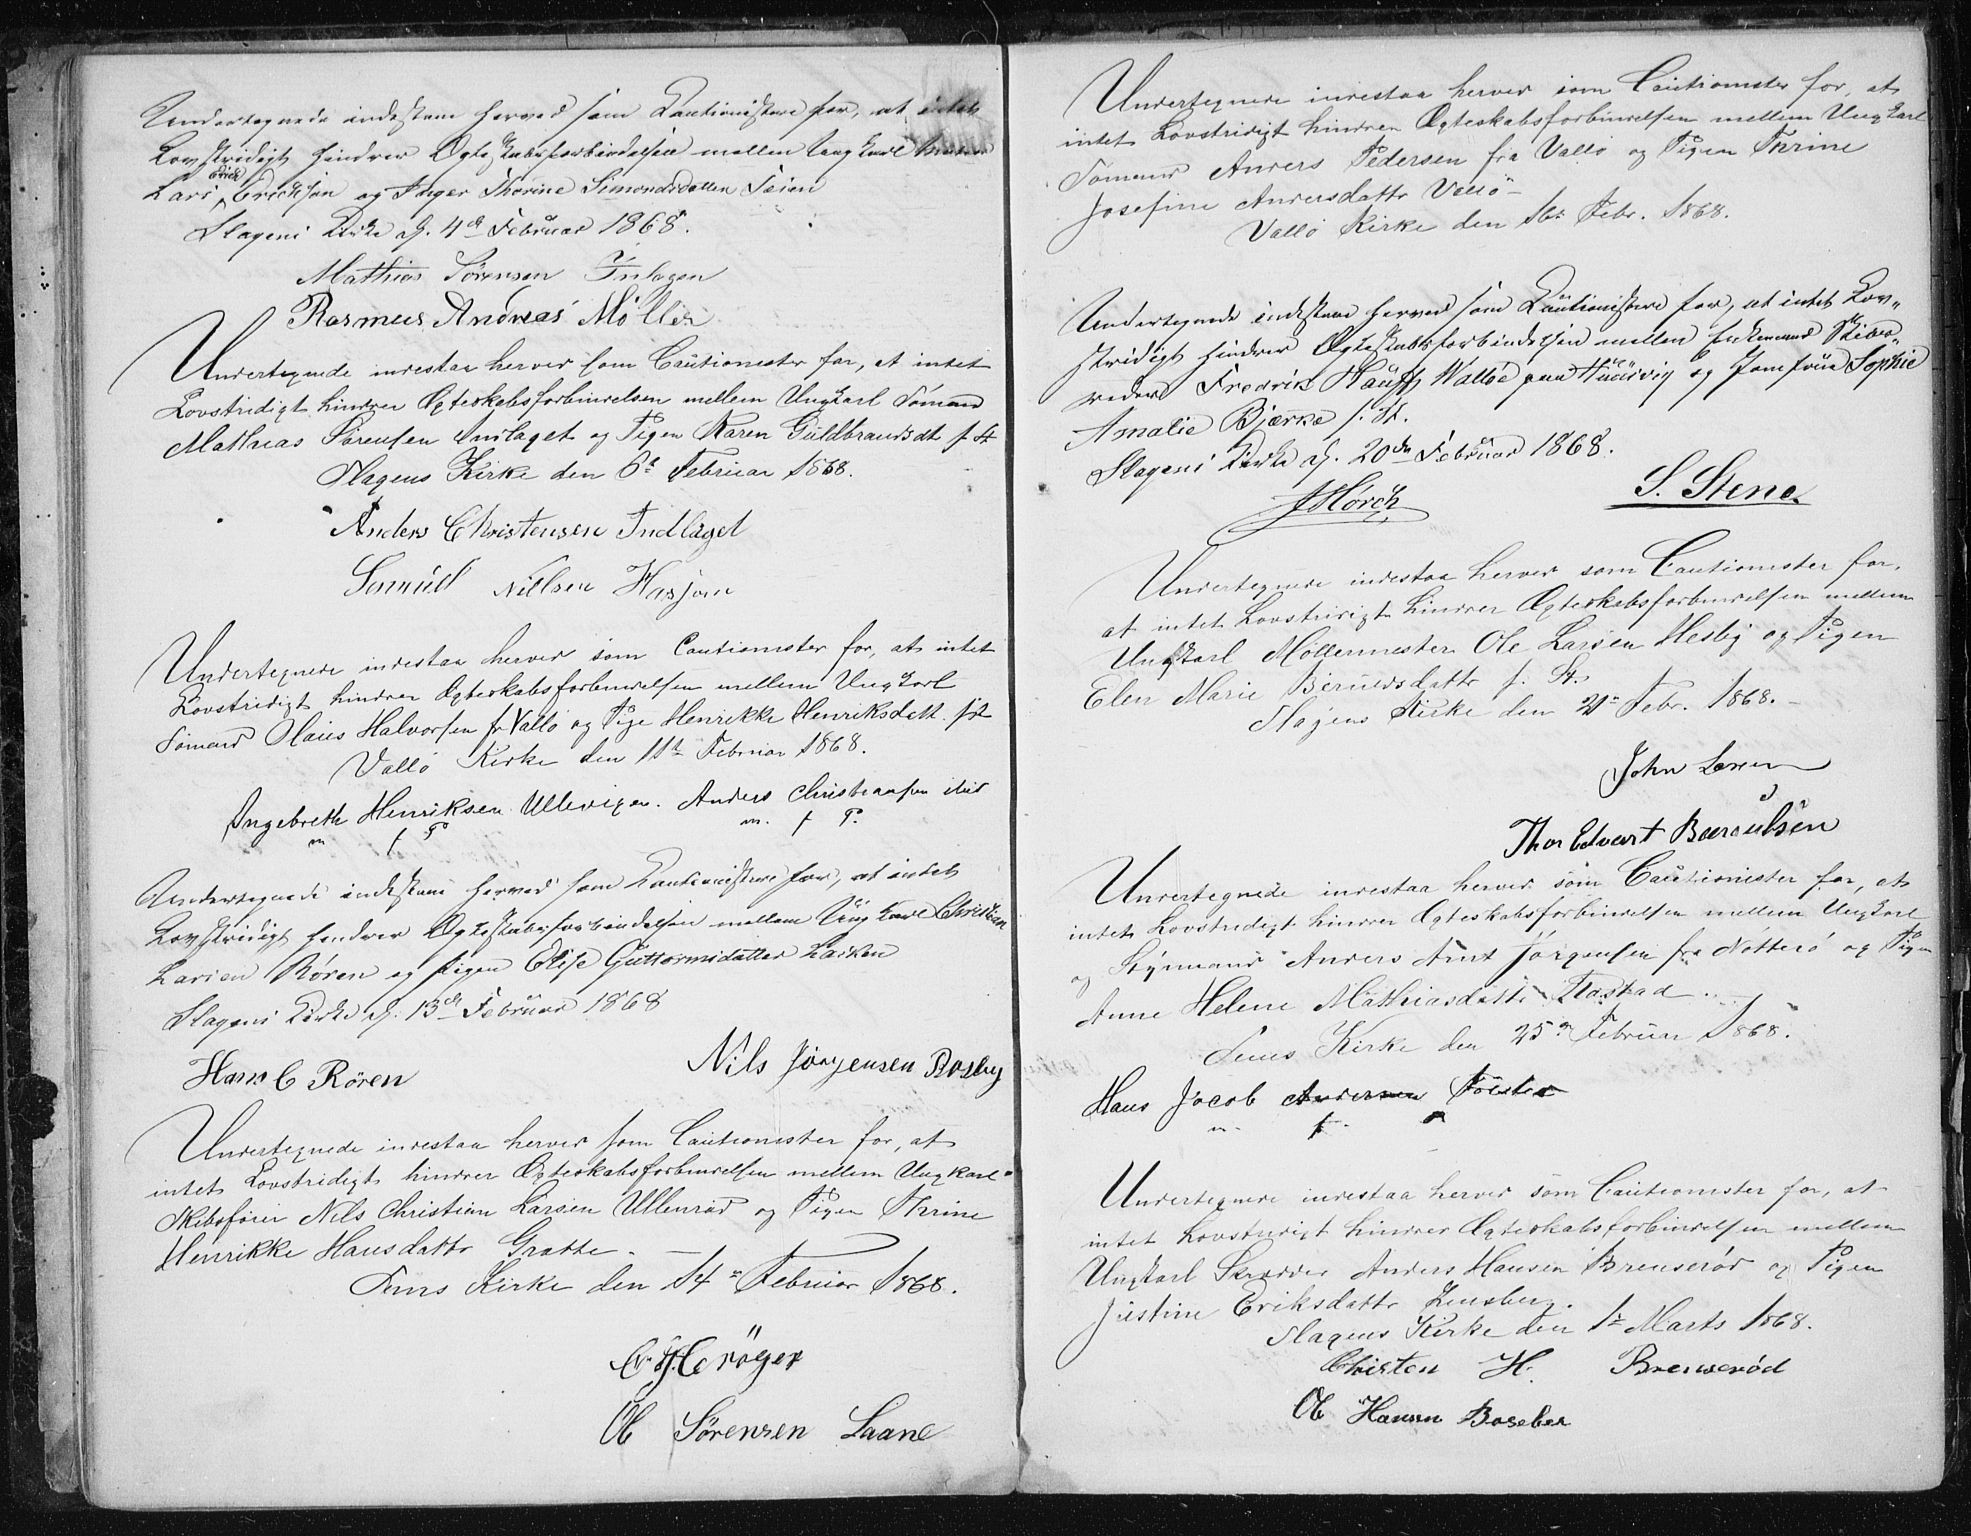 Undertegnede indestaae herved som Cautionister for, at intet
Lovstridigt hindrer Ægteskabsforbindelsen mellem Ungkarl
Lars Erick Erichsen og Inger Thorine Simonsdatter Teien
Slagens Kirke d. 4de Februar 1868.
Mathias Sørensen Inlagen
Rasmus Andreas Møller
Undertegnede indestaa herved som Cautionister for, at intet
Lovstridigt hindrer Ægteskabsforbindelsen mellem Ungkarl Sømand
Mathias Sørensen Indlaget og Pigen Karen Guldbrandsdt f St
Slagens Kirke den 6te Februar 1868.
Anders Christensen Indlaget
Nillsen
Undertegnede indestaa herved som Cautionister for, at intet
Lovstridigt hindrer Ægteskabsforbindelsen mellem Ungkarl
Sømand Olaus Halvorsen fr Vallø og Pige Henrikke Henriksdatt. f St
Vallø Kirke den 11te Februar 1868.
Ingebreth Henriksen Ullevigen. Anders Christiansen ibid
m f P m. f P.
Undertegnede indestaae herved som Cautionister for, at intet
Lovstridigt hindrer Ægteskabsforbindelsen mellem Ungkarl Christian
Larsen Røren og Pigen Elise Guttormsdatter
Slagens Kirke d. 13de Februar 1868
Hans C Røren Nils Jørgensen Rosby
Undertegnede indestaa herved som Cautionister for, at
intet Lovstridigt hindrer Ægteskabsforbindelsen mellem Ungkarl
Skibsfører Nils Christian Larsen Ullenrød og Pigen Thrine
Henrikke Hansdattr Grette. —
Sems Kirke den 14de Februar 1868.
Ole Sørensen Laane
Undertegnede indestaa herved som Cautionister for, at
intet Lovstridigt hindrer Ægteskabsforbindelsen mellem Ungkarl
Sømand Anders Pedersen fra Vallø og Pigen Thrine
Josefine Andersdattr Vallø —
Vallø Kirke den 16de Febr. 1868.
Undertegnede indestaae herved som Cautionister for, at intet Lov„
stridigt hindrer Ægteskabsforbindelsen mellem Enkemand Skibs„
reder Fredrik Hauff Walløe paa Huusvig og Jomfrue Sophie
Amalie Bjerke f. St.
Slagens Kirke d. 20de Februar 1868.
JHorch S. Stene.
Undertegnede indestaa herved som Cautionister for,
at intet Lovstridigt hindrer Ægteskabsforbindelsen mellem
Ungkarl Møllermester Ole Larsen Hesby og Pigen
Elen Marie Berulsdattr f. St.
Slagens Kirke den 21de Febr. 1868. —
John Larsen
Thor Edvart Bærulsen
Undertegnede indestaa herved som Cautionister for, at
intet Lovstridigt hindrer Ægteskabsforbindelsen mellem Ungkarl
og Styrmand Anders Arnt Jørgensen fra Nøtterø og Pigen
Anne Helene Mathiasdattr
Sems Kirke den 25de Februar 1868.
Hans Jacob Andersen Tolsted
m. f.
Undertegnede indestaa herved som Cautionister for, at
intet Lovstridigt hindrer Ægteskabsforbindelsen mellem
Ungkarl Skrædder Anders Hansen Brenserød og Pigen
Justine Eriksdattr
Slagens Kirke den 1te Marts 1868.
Christen H. Brenserød
Ole Hansen Boseber